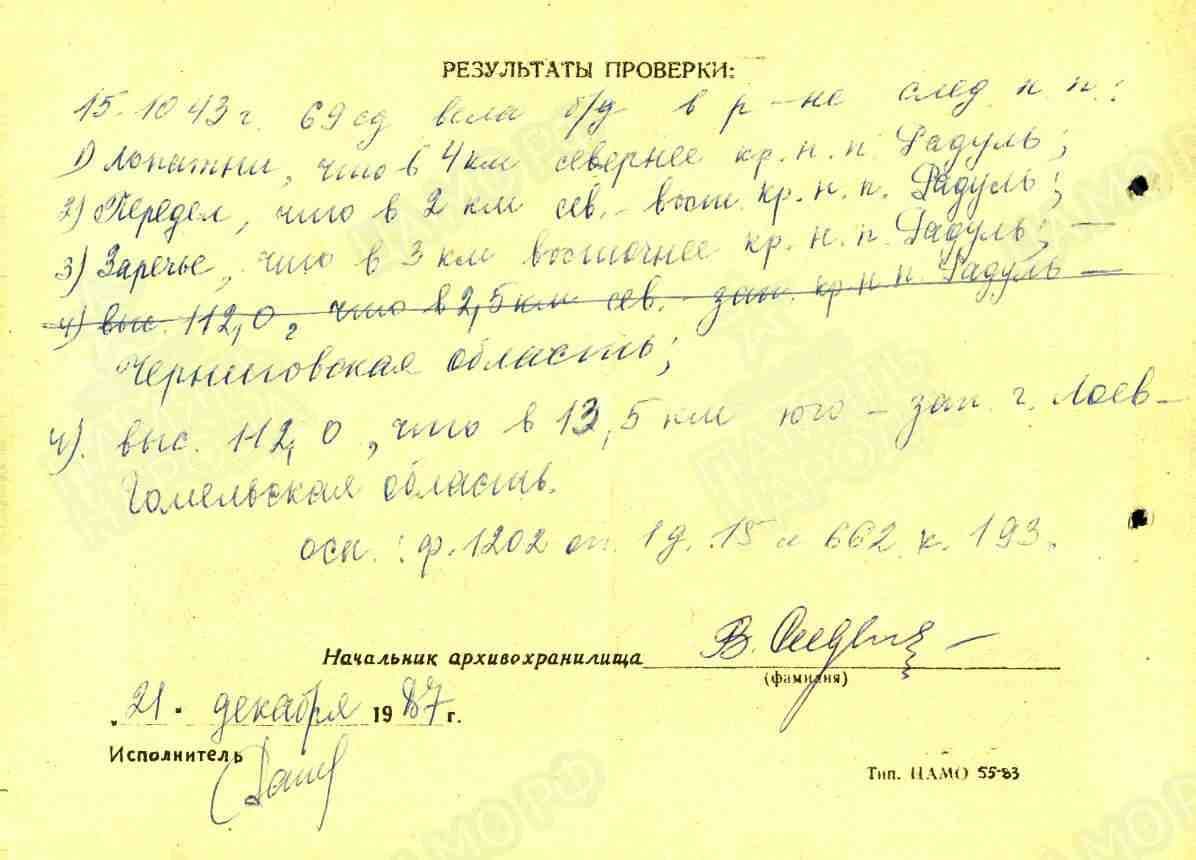 РЕЗУЛЬТАТЫ ПРОВЕРКИ:
15.10 43 г. 69 сд вела б/д в р-не след н п:
1) Лопатни, что в 4 км севернее кр. н. п. Радуль;
2) Передел, что в 2 км сев. - вост. кр. н. п. Радуль;
3) Заречье, что в 3 км восточнее кр. н. п. Радуль; —
4) выс. 112,0, что в 2,5 км сев. - зап. кр н п Радуль —
Черниговская область;
4). выс. 112,0, что в 13,5 км юго - зап. г. Лоев -
Гомельская область.
осн.: ф. 1202 оп. 1 д. 15 л 662 к. 193.
Начальник архивохранилища В.
(фамилия)
„21" декабря 1987 г.
Исполнитель
Тип. ЦАМО 55-83
ЦАМО РФ
ПАМЯТЬ НАРОДА